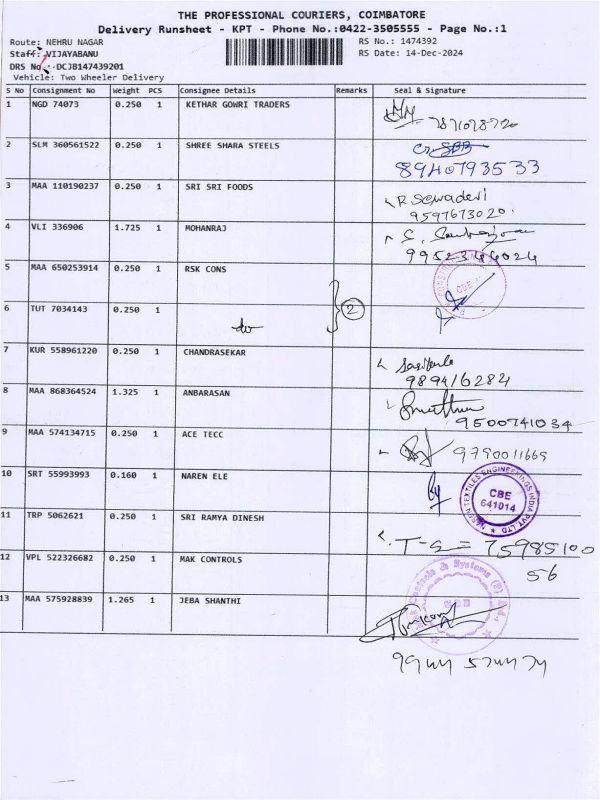 THE PROFESSIONAL COURIERS, COIMBATORE
Delivery Runsheet - KPT - Phone No.:0422-3505555 - Page No.:1
Route: NEHRU NAGAR RS No.: 1474392
Staff: VIJAYABANU RS Date: 14-Dec-2024
DRS No.: DCJB147439201
Vehicle: Two Wheeler Delivery
S No Consignment No Weight PCS Consignee Details Remarks Seal & Signature
1 NGD 74073 0.250 1 KETHAR GOWRI TRADERS
2 SLM 360561522 0.250 1 SHREE SHARA STEELS
8940793533
3 MAA 110190237 0.250 1 SRI SRI FOODS
9597673020
4 VLI 336906 1.725 1 MOHANRAJ
5 MAA 650253914 0.250 1 RSK CONS
CBE
6 TUT 7034143 0.250 1 do 2
7 KUR 558961220 0.250 1 CHANDRASEKAR
9894116284
8 MAA 868364524 1.325 1 ANBARASAN
9500741034
9 MAA 574134715 0.250 1 ACE TECC 9790011669
10 SRT 55993993 0.160 1 NAREN ELE
NAREN TEXTILES ENGINEERINGS INDIA PVT LTD
CBE
641014
11 TRP 5062621 0.250 1 SRI RAMYA DINESH
T-S = 75985100
56
12 VPL 522326682 0.250 1 MAK CONTROLS
Controls & Systems (P) Ltd.
13 MAA 575928839 1.265 1 JEBA SHANTHI